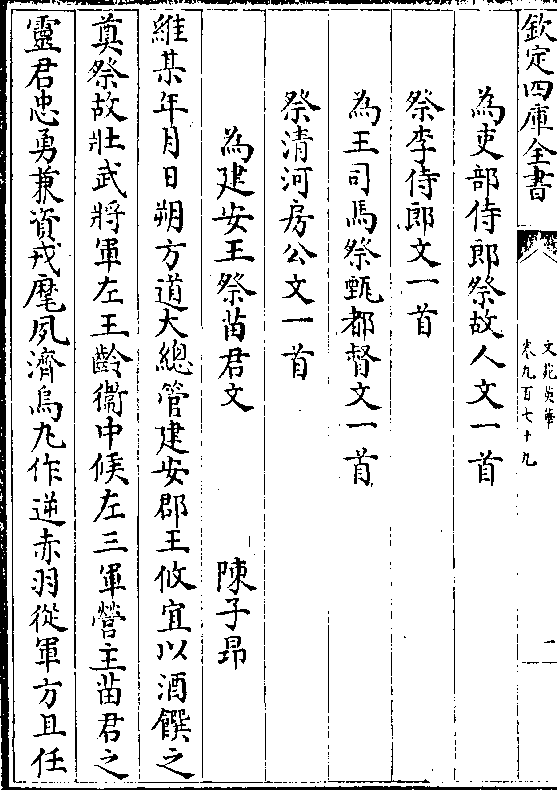 欽定四庫全書
文苑英華
卷九百七十九
一
為吏部侍郎祭故人文一首
祭李侍郎文一首
為王司馬祭甄都督文一首
祭清河房公文一首
為建安王祭苗君文 陳子昂
維某年月日朔方道大總管建安郡王攸宜以酒饌之
奠祭故壯武將軍左王齡衞中候左三軍營主苗君之
靈君忠勇兼資戎麾夙濟烏丸作逆赤羽從軍方且任